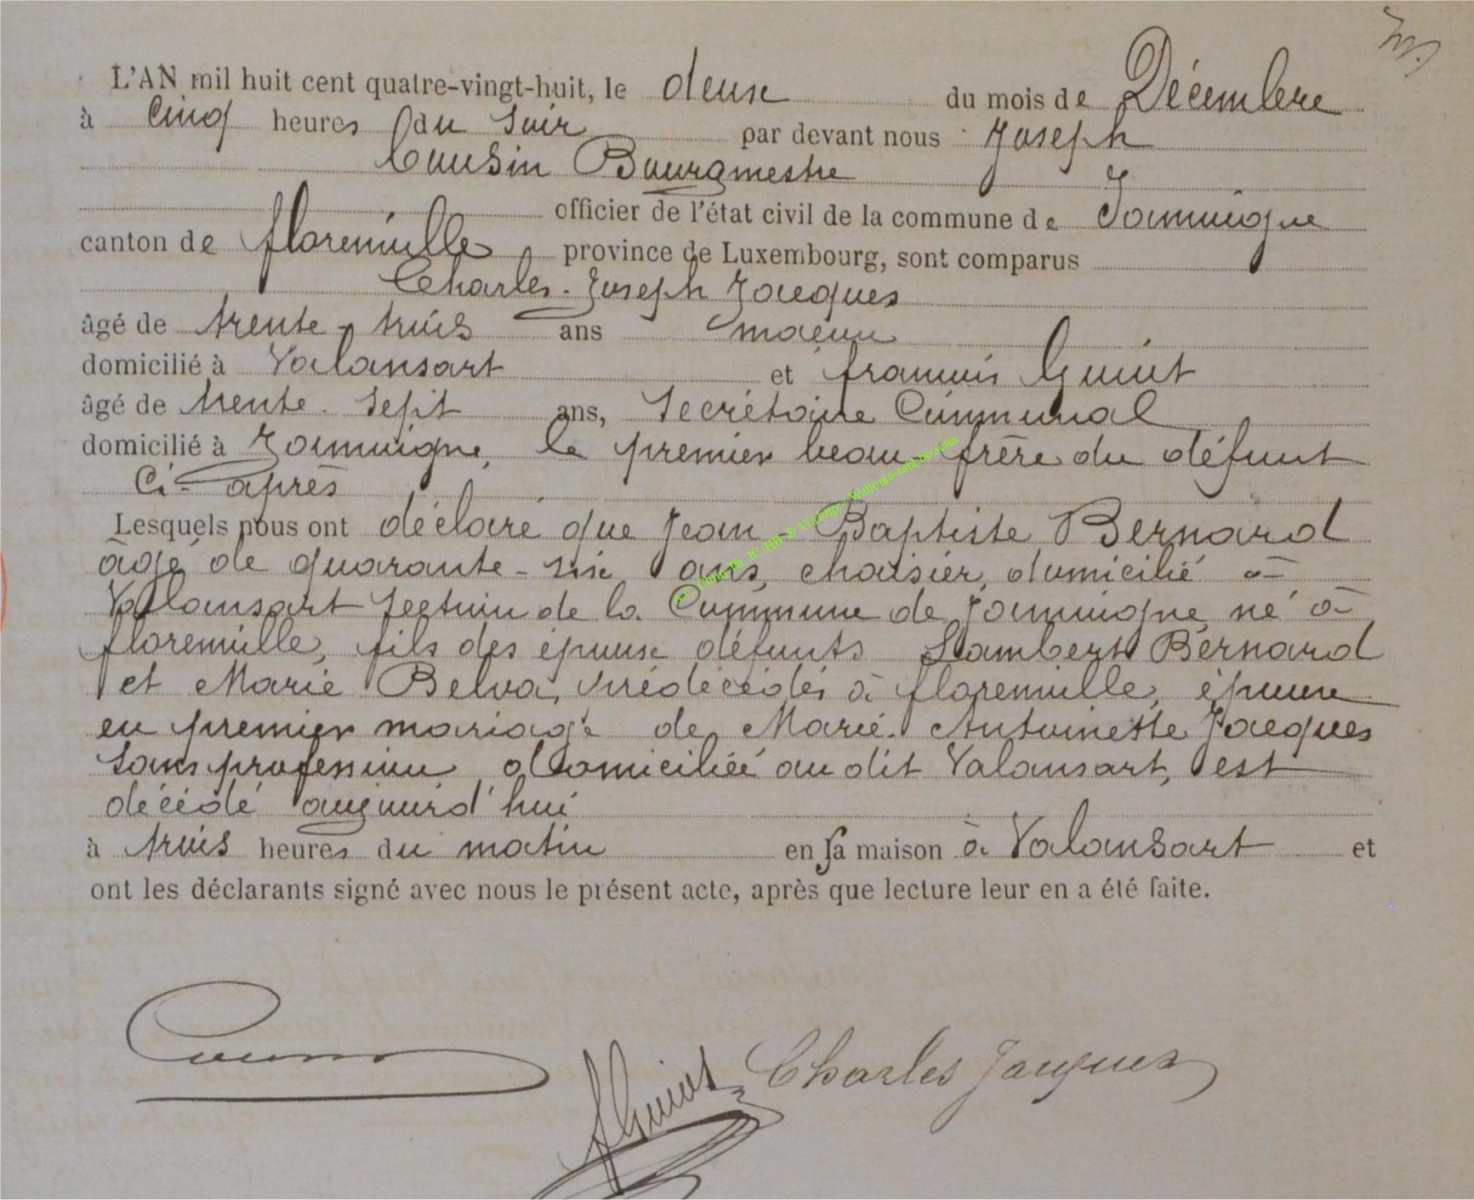 L'AN mil huit cent quatre-vingt-huit, le deux du mois de Décembre
à cinq heures du soir par devant nous Joseph
Cousin Bourgmestre
officier de l'état civil de la commune de Jamoigne
canton de florenville province de Luxembourg, sont comparus
Charles-Joseph Jacques
âgé de trente-trois ans maçon
domicilié à Valansart et françois Guiot
âgé de trente-sept ans, Secrétaire Communal
domicilié à Jamoigne, le premier beau frère du défunt
ci-après
Lesquels nous ont déclaré que Jean-Baptiste Bernard
âgé de quarante-six ans, chaisier, domicilié à
Valansart section de la Commune de Jamoigne né à
florenville, fils des époux défunts Lambert Bernard
et Marie Belva, prédécédés à florenville, époux
en premier mariage de Marie-Antoinette Jacques
sans profession, domiciliée au dit Valansart, est
décédé aujourd'hui
à trois heures du matin en sa maison à Valansart et
ont les déclarants signé avec nous le présent acte, après que lecture leur en a été faite.
Cousin
fGuiot Charles Jacques